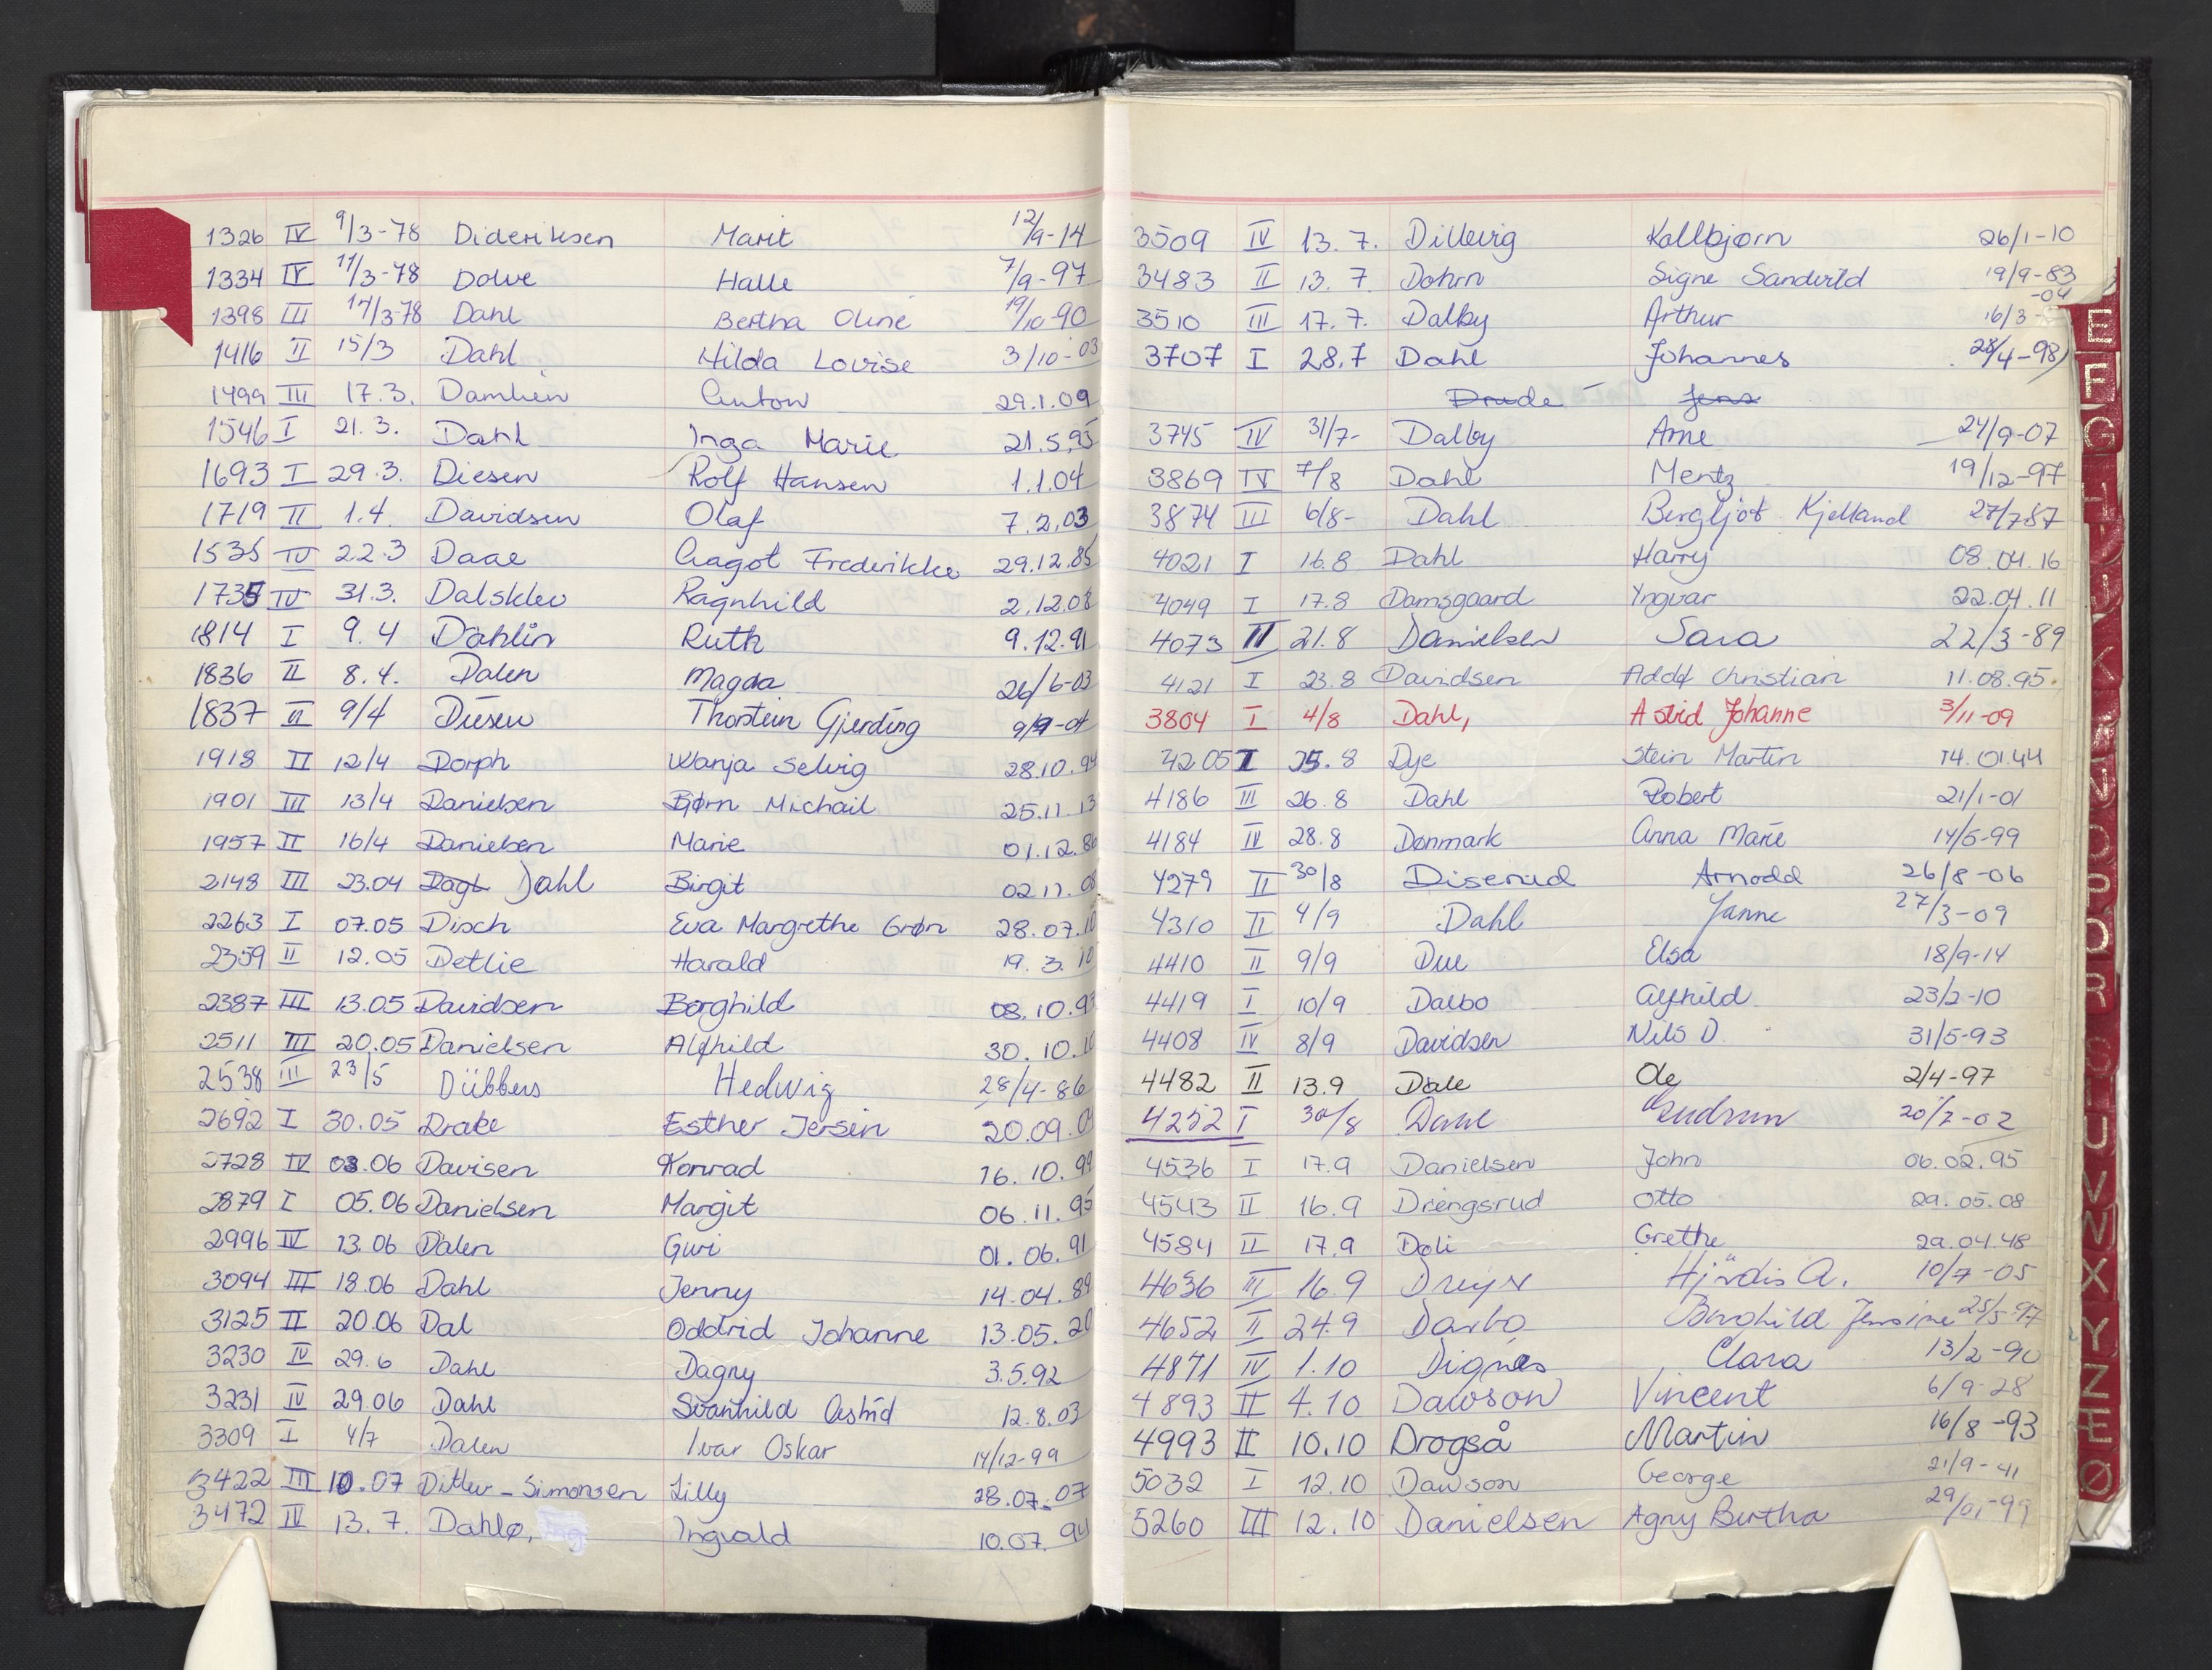 1326 IV 9/3-78 Dideriksen Marit 12/9-14
1334 IV 11/3-78 Dolve Halle 7/9-97
1398 III 14/3-78 Dahl Bertha Oline 19/10-90
1416 II 15/3 Dahl Hilda Lovise 3/10-03
1499 III 17.3. Damlien Anton 29.1.09
1546 I 21.3. Dahl Inga Marie 21.5.95
1693 I 29.3. Diesen Rolf Hansen 1.1.04
1719 II 1.4. Davidsen Olaf 7.2.03
1535 IV 22.3 Daae Aagot Frederikke 29.12.85
1735 IV 31.3. Dalsklev Ragnhild 2.12.08
1814 I 9.4 Dahlin Ruth 9.12.91
1836 II 8.4. Dalen Magda 26/6-03
1837 II 9/4 Diesen Thorstein Gjerding 9/9-04
1918 II 12/4 Dorph Wanja Selvig 28.10.94
1901 III 13/4 Danielsen Bjørn Michail 25.11.13
1957 II 16/4 Danielsen Marie 01.12.86
2148 III 23.04 Dagl Dahl Birgit 02.11.08
2263 I 07.05 Disch Eva Margrethe Grøn 28.07.10
2359 II 12.05 Detlie Harald 19.3.10
2387 III 13.05 Davidsen Borghild 08.10.93
2511 III 20.05 Danielsen Alfhild 30.10.10
2538 III 23/5 Dübbers Hedwig 28/4-86
2692 I 30.05 Drake Esther Jersin 20.09.04
2728 IV 03.06 Davisen Konrad 16.10.99
2879 I 05.06 Danielsen Margit 06.11.95
2996 IV 13.06 Dalen Guri 01.06.91
3094 III 18.06 Dahl Jenny 14.04.89
3125 II 20.06 Dal Oddrid Johanne 13.05.20
3230 IV 29.6 Dahl Dagny 3.5.92
3231 IV 29.06 Dahl Svanhild Astrid 12.8.03
3309 I 4/7 Dalen Ivar Oskar 14/12-99
3422 III 10.07 Ditlev-Simonsen Lilly 28.07.07
3472 IV 13.7. Dahlø, Ingvald 10.07.94
3509 IV 13.7. Dillevig Kallbjørn 26/1-10
3483 II 13.7 Dohrn Signe Sandvild 19/9-83
3510 III 17.7. Dalby Arthur 16/3 -04
3707 I 28.7 Dahl Johannes 28/4-98
Drude Jens
3745 IV 31/7- Dalby Arne 24/9-07
3869 IV 7/8 Dahl Mentz 19/12-97
3874 III 6/8- Dahl Bergljot Kjelland 27/7 87
4021 I 16.8 Dahl Harry 08.04.16
4049 I 17.8 Damsgaard Yngvar 22.04.11
4073 II 21.8 Danielsen Sara 22/3-89
4121 I 23.8 Davidsen Adolf Christian 11.08.95.
3804 I 4/8 Dahl, Astrid Johanne 3/11-09
4205 I 25.8 Dye Stein Martin 14.01.44
4186 III 26.8 Dahl Robert 21/1-01
4184 IV 28.8 Danmark Anna Marie 14/5-99
4279 II 30/8 Diserud Arnodd 26/8-06
4310 II 4/9 Dahl Janne 27/3-09
4410 II 9/9 Due Elsa 18/9-14
4419 I 10/9 Dalbo Alfhild 23/2-10
4408 IV 8/9 Davidsen Nils D. 31/5-93
4482 II 13.9 Dale Ole 2/4-97
4252 I 30/8 Dahl Gudrun 20/7-02
4536 I 17.9 Danielsen John 06.02.95
4543 II 16.9 Drengsrud Otto 29.05.08
4584 II 17.9 Doli Grethe 29.04.48
4636 III 16.9 Dreyer Hjördis A. 10/7-05
4652 II 24.9 Darbo Borghild Jensine 25/5-97
4871 IV 1.10 Dignes Clara 13/2-90
4893 II 4.10 Dawson Vincent 6/9-28
4993 II 10.10 Drogså Martin 16/8-93
5032 I 12.10 Dawson George 21/9-41
5260 III 12.10 Danielsen Agny Bertha 29/01-99
E
F
G
H
I
J
K
N
O
P
Q
R
S
T
U
V
W
X
Y
Z
Æ
Ø